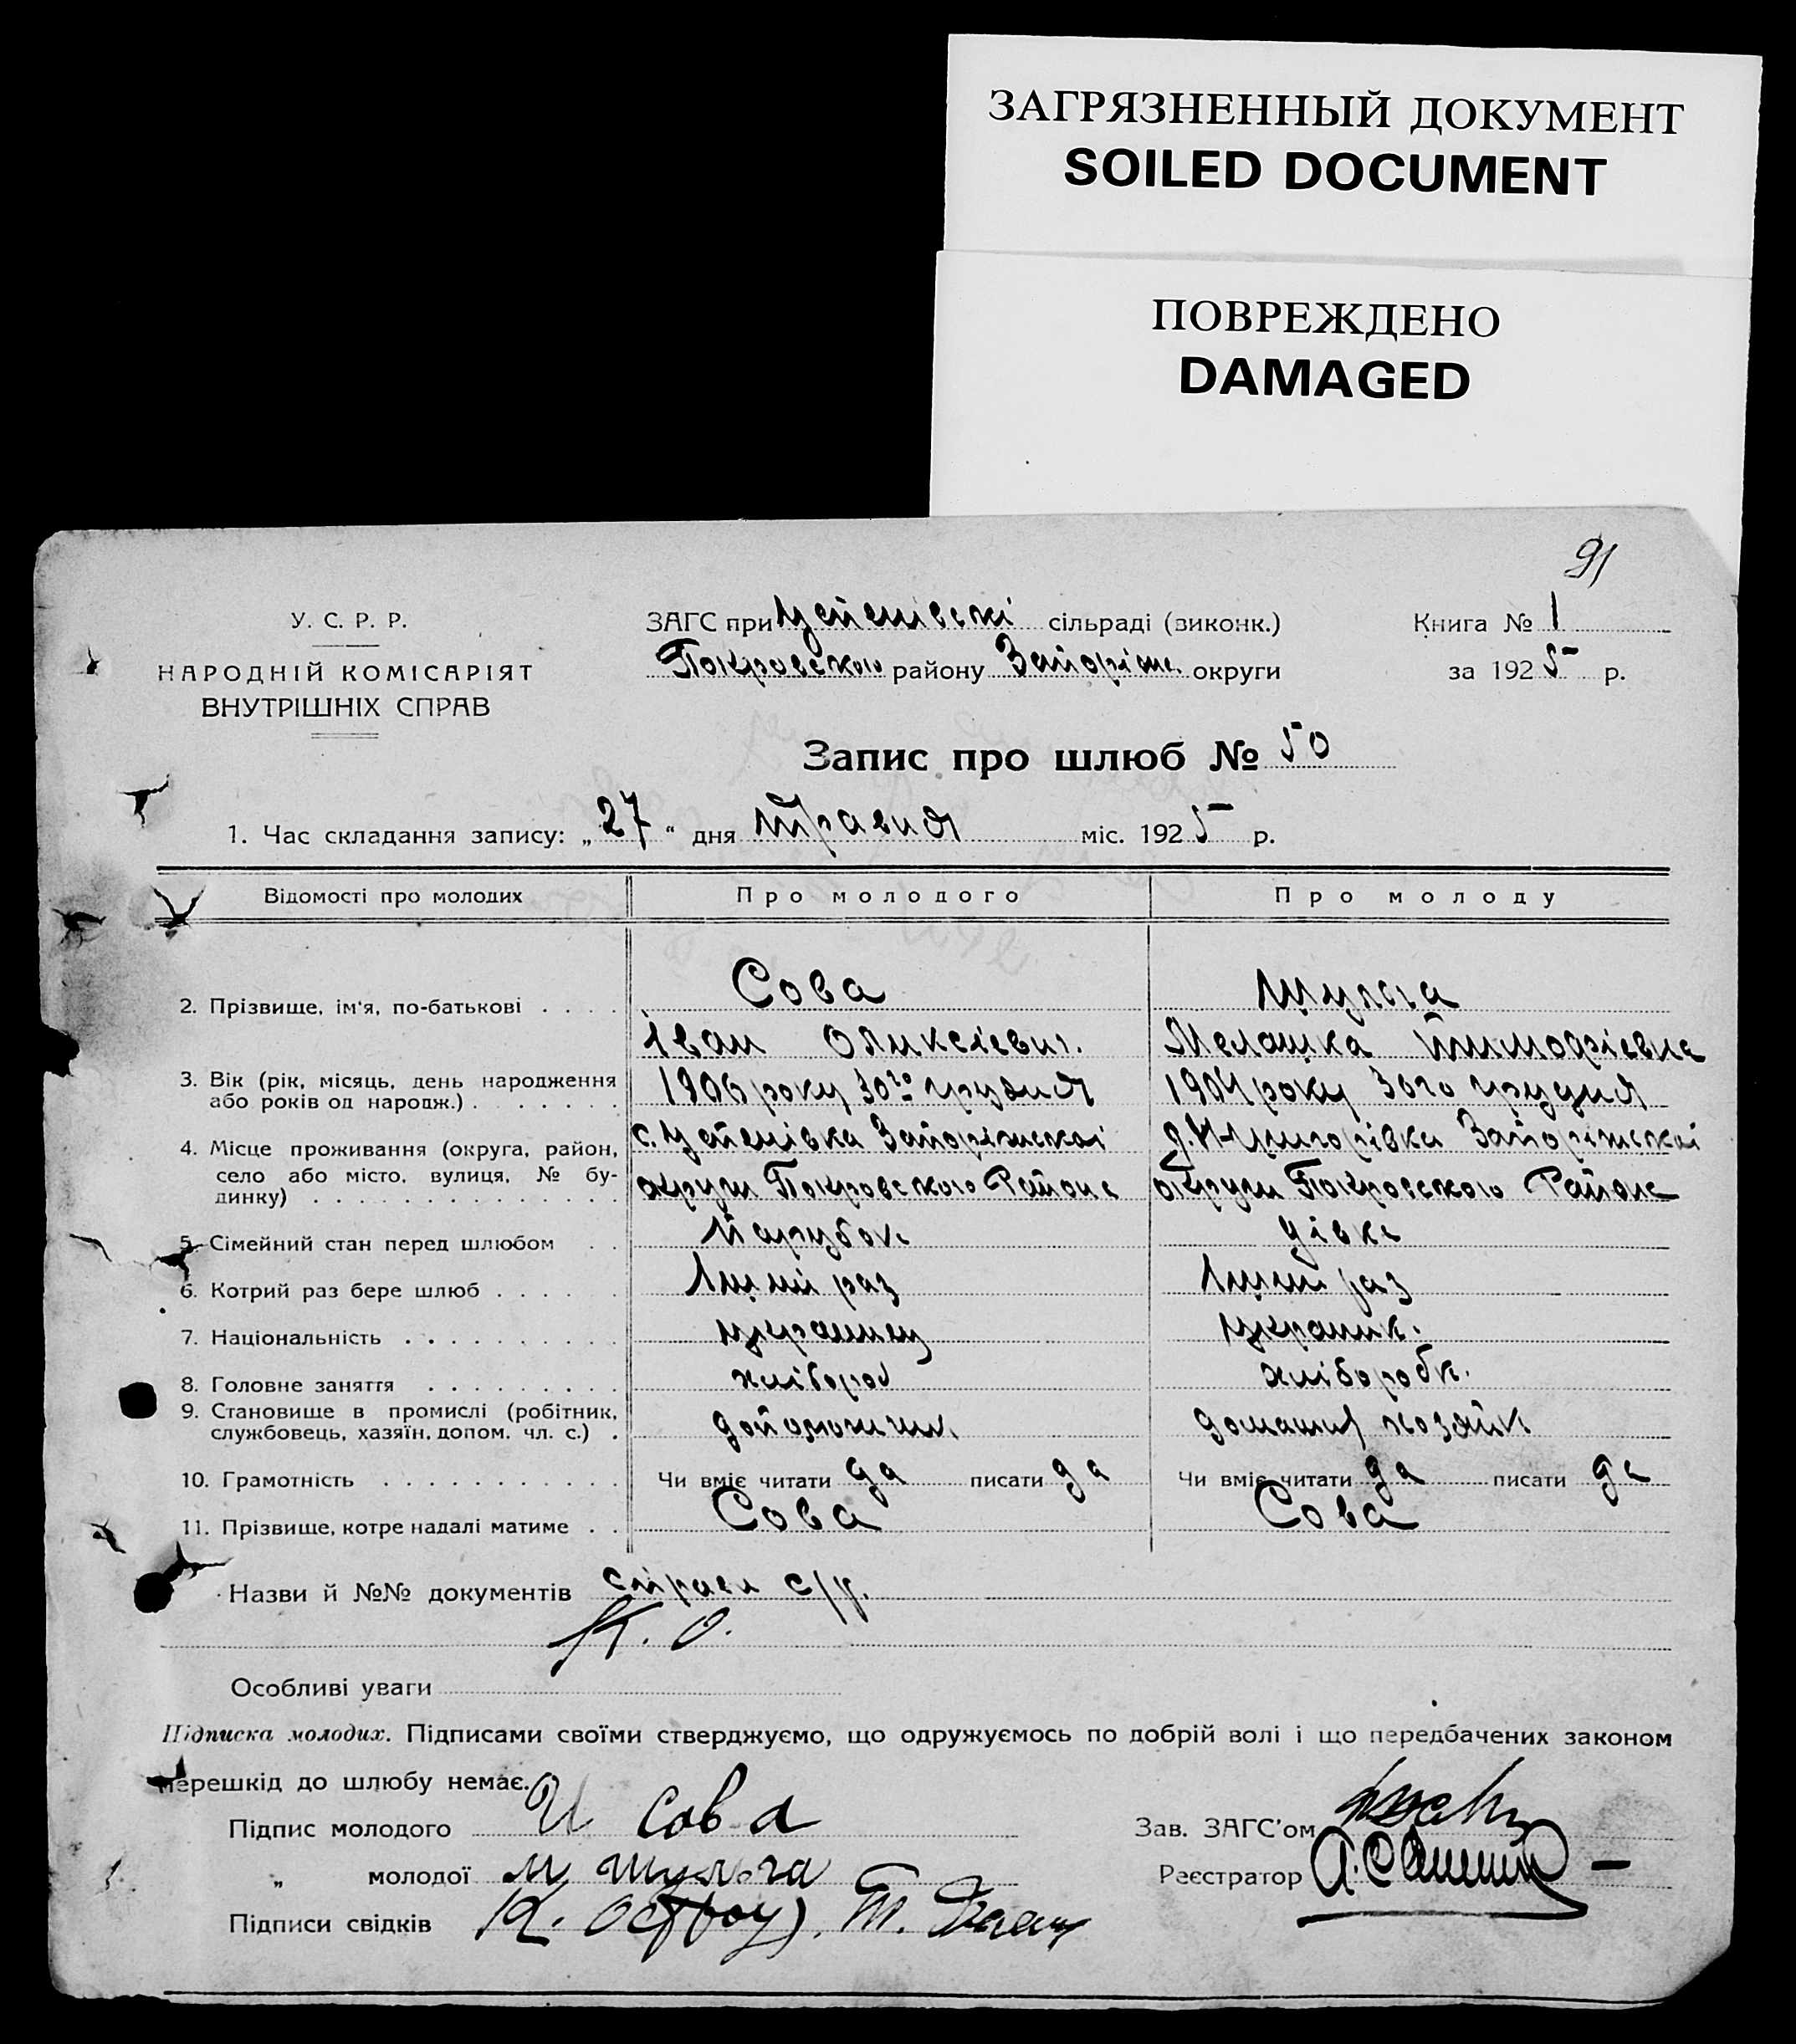 ЗАГРЯЗНЕННЫЙ ДОКУМЕНТ
SOILED DOCUMENT
ПОВРЕЖДЕНО
DAMAGED
91
У. С. Р. Р.
НАРОДНІЙ КОМІСАРІЯТ
ВНУТРІШНІХ СПРАВ
ЗАГС при Успенівскі сільраді (виконк.)
Покровського району Запоріж. округи
Книга № 1
за 1925 р.
Запис про шлюб № 50
1. Час складання запису: „27" дня травня міс. 1925 р.
Відомості про молодих Про молодого Про молоду
2. Прізвище, ім'я, по-батькові . . . . Сова Шульга
Іван Олексієвич. Мелашка
3. Вік (рік, місяць, день народження 1906 року 30го грудня 1904 року 30го грудня
або років од народж.) . . . . . . .
4. Місце проживання (округа, район, с. Успенівка Запоріжскої Запоріжскої
село або місто, вулиця, № бу- округи Покровского Района округи Покровского Района
динку) . . . . . . . . . . . . . .
5. Сімейний стан перед шлюбом . . Парубок дівка
6. Котрий раз бере шлюб . . . . . . раз раз
7. Національність . . . . . . . . . . українец україник.
8. Головне заняття . . . . . . . . . хлібороб хлібороб к.
9. Становище в промислі (робітник,
службовець, хазяїн, допом. чл. с.) .
10. Грамотність . . . . . . . . . . . Чи вміє читати да писати да Чи вміє читати да писати да
11. Прізвище, котре надалі матиме . . Сова Сова
Назви й №№ документів с/р.
К. О.
Особливі уваги
Підписка молодих. Підписами своїми стверджуємо, що одружуємось по добрій волі і що передбачених законом
перешкід до шлюбу немає.
Підпис молодого И Сова
Зав. ЗАГС'ом
„ молодої М Шульга
Реєстратор
Підписи свідків К.